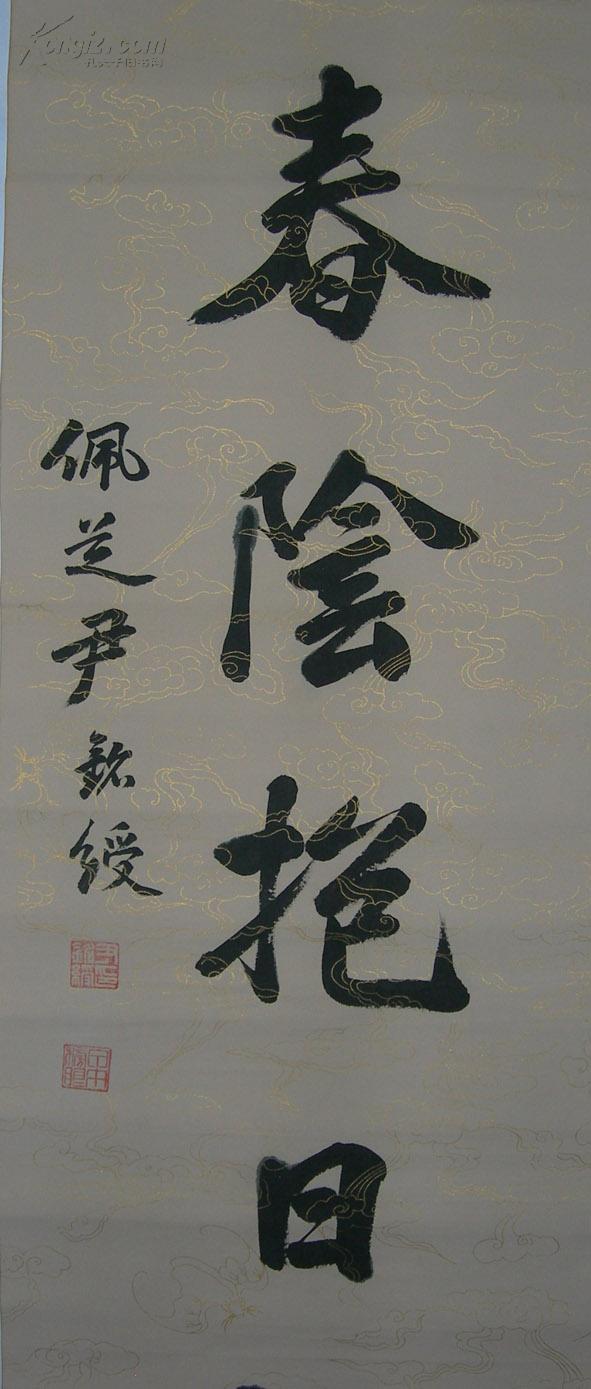 春陰抱日
佩芝尹銘綬
Kongfz.com
孔夫子旧书网